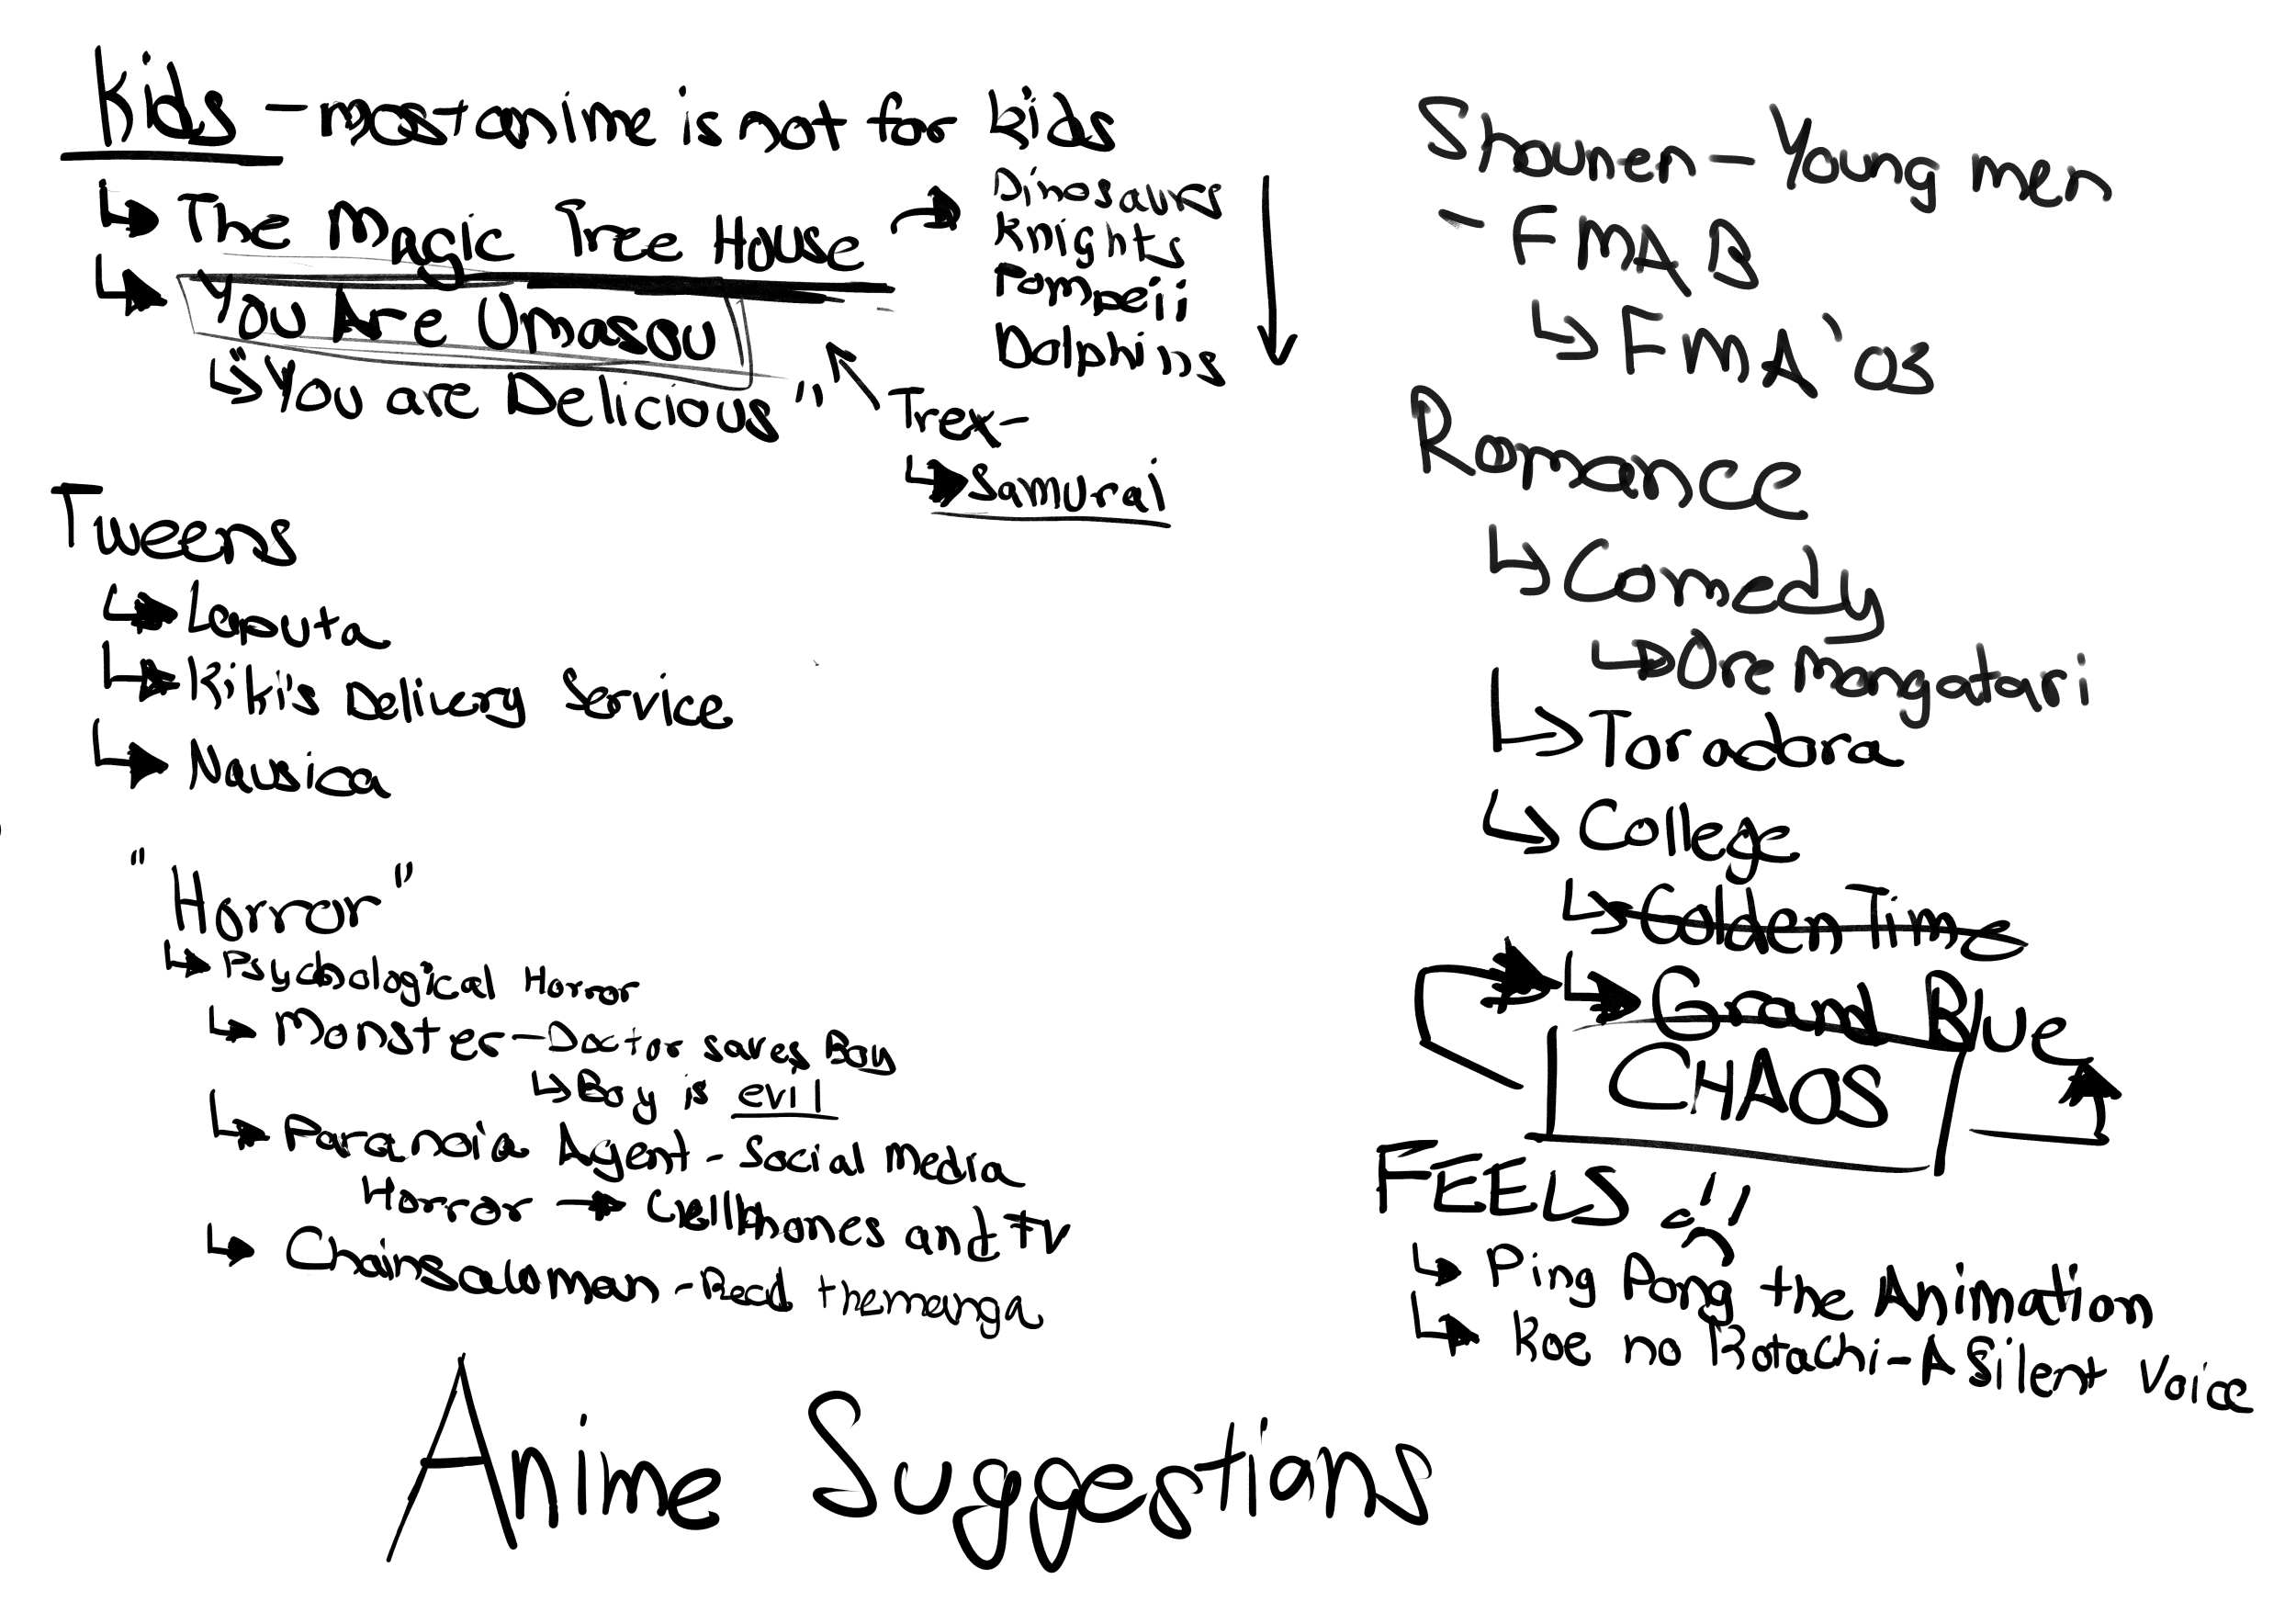 Kids - most anime is not for kids
↳ The Magic Tree House → Dinosaurs
Knights
Pompeii
Dolphins
↳ You Are Umasou
↳ "You are Delicious"
Trex-
↳ Samurai
Tweens
↳ Laputa
↳ Kiki's Delivery Service
↳ Nausica
"Horror"
↳ Psychological Horror
↳ Monster - Doctor saves Boy
↳ Boy is evil
↳ Paranoia Agent - Social Media
Horror → Cellphones and TV
↳ Chainsawman - Read the manga
Shounen - Young men
- FMA B
↳ FMA '03
Romance
↳ Comedy
↳ Ore Mongatari
↳ Toradora
↳ College
↳ Golden Time
↳ Grand Blue
CHAOS
FEELS !!
↳ Ping Pong the Animation
↳ Koe no Kotachi - A Silent Voice
Anime Suggestions